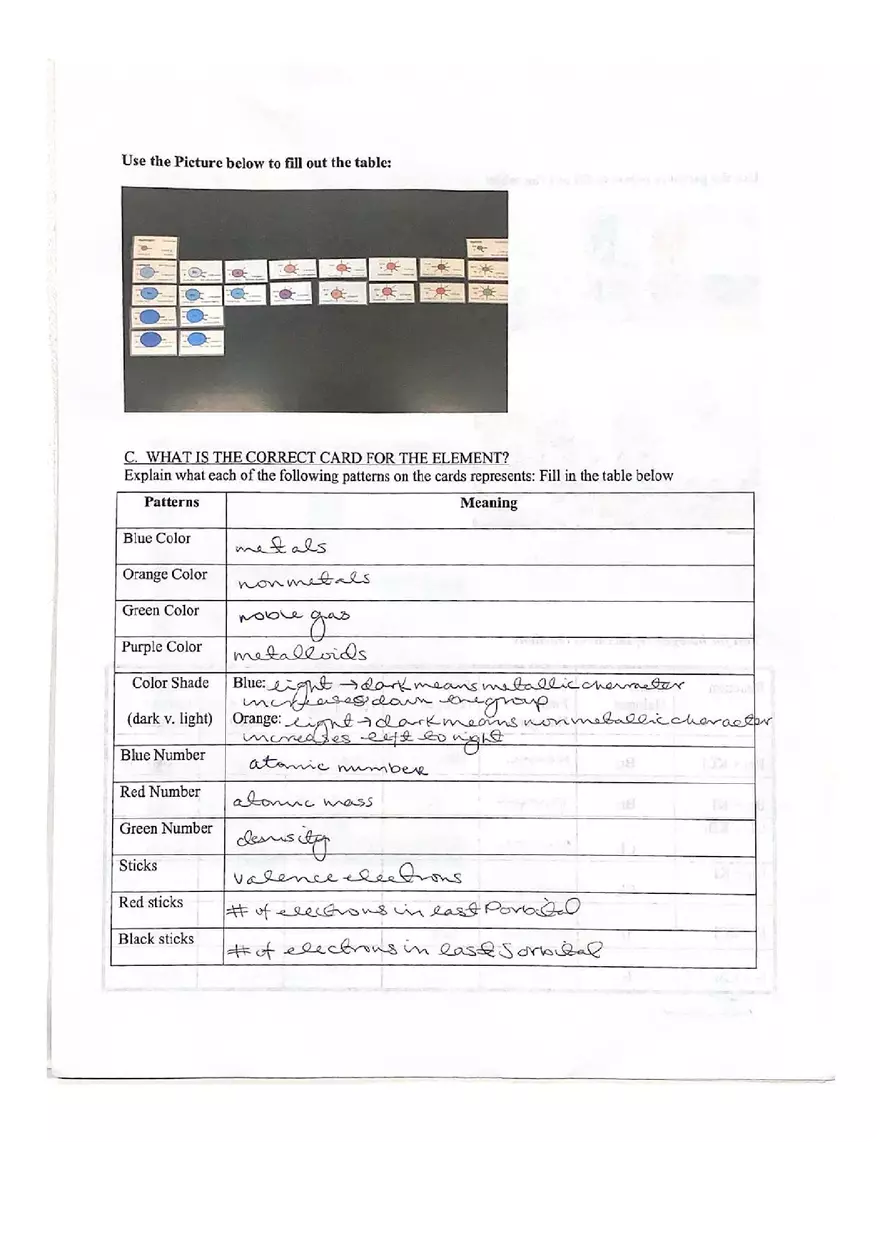 Use the Picture below to fill out the table:
C. WHAT IS THE CORRECT CARD FOR THE ELEMENT?
Explain what each of the following patterns on the cards represents: Fill in the table below
Patterns Meaning
Blue Color metals
Orange Color nonmetals
Green Color noble gas
Purple Color metalloids
Color Shade Blue: light → dark means metallic character
increases down the group
(dark v. light) Orange: light → dark means nonmetallic character
increases left to right
Blue Number atomic number
Red Number atomic mass
Green Number density
Sticks valence electrons
Red sticks # of electrons in last P orbital
Black sticks # of electrons in last S orbital